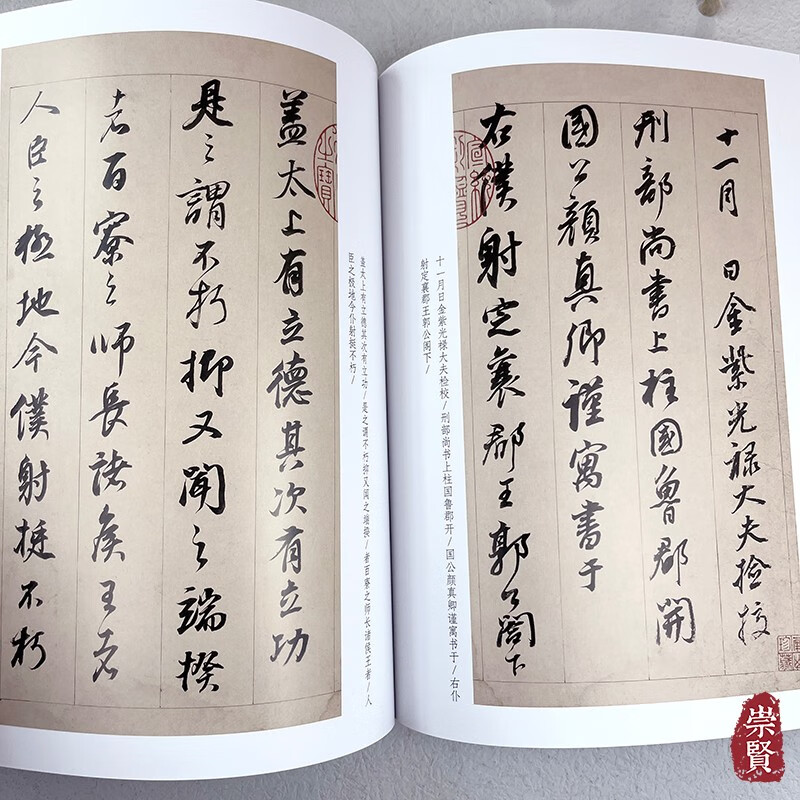 十一月 日金紫光禄大夫捡挍
刑部尚書上柱國魯郡開
國公顔真卿謹寓書于
右僕射定襄郡王郭公閤下
十一月日金紫光禄大夫检校/刑部尚书上柱国鲁郡开/国公颜真卿谨寓书于/右仆
射定襄郡王郭公阁下/
蓋太上有立德其次有立功
是之謂不朽抑又聞之端揆
者百寮之師長諸侯王者
人臣之極地今僕射挺不朽
盖太上有立德其次有立功/是之谓不朽抑又闻之端揆/者百寮之师长诸侯王者/人
臣之极地今仆射挺不朽/
崇賢